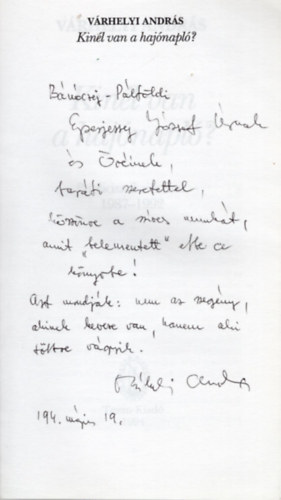 VÁRHELYI ANDRÁS
Kinél van a hajónapló?
Bánócréj - Pálföldi
József Úrnak
és Öréinek,
baráti szeretettel,
köszönve a szíves munkát,
amit "belementett" ebbe a
könyvbe!
Azt mondják: nem az szegény,
akinek kevese van, hanem aki
többre vágyik.
Várhelyi András
194. május 19.